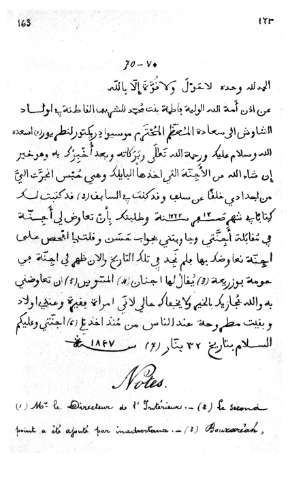 163 ١٦٣
٧٠ – 70
الحمد لله وحده لا حول ولا قوة إلا بالله
عن إذن أمة الله الولية فاطمة بنت محمد الشريف القاطنة في اولاد
الشاوش الى سعادة المعظم المحترم موسيو دريكتور لنطريور ان اسعده
الله وسلام عليك ورحمة الله تعلى وبركاته وبعد أخبرك به وهو خير
إن شاء الله عن الأجنة التي اخذها البايلك وهي حبس انجرت الي
من اجدادي خلفا عن سلف وقد كنت في السابق (2) قد كتبت لك
كتابا في شهر سنة وطلبتك بأن تعاوض لي أجنة
في مقابلة أجنتي وجاوبتني بجواب حسن وقلت لي افحص على
اجنة نعاوضك بها فلم نجد في تلك التاريخ والآن ظهر لي اجنة في
حومة بوزريعة (3) يقال لها اجنان (4) (5) ان تعاوضني
به والله يجازيك بالخير ولا يخفاك حالي لاني امرأة فقيرة وعندي اولاد
وبقيت مطروحة عند الناس من منذ اخذ (6) اجنتي وعليكم
السلام بتاريخ ٢٣ ينار (7) ١٨٤٧
Notes.
(1) Mr. le Directeur de l'Intérieur. — (2) Le second
point a été ajouté par inadvertance. — (3) Bouzaréah,